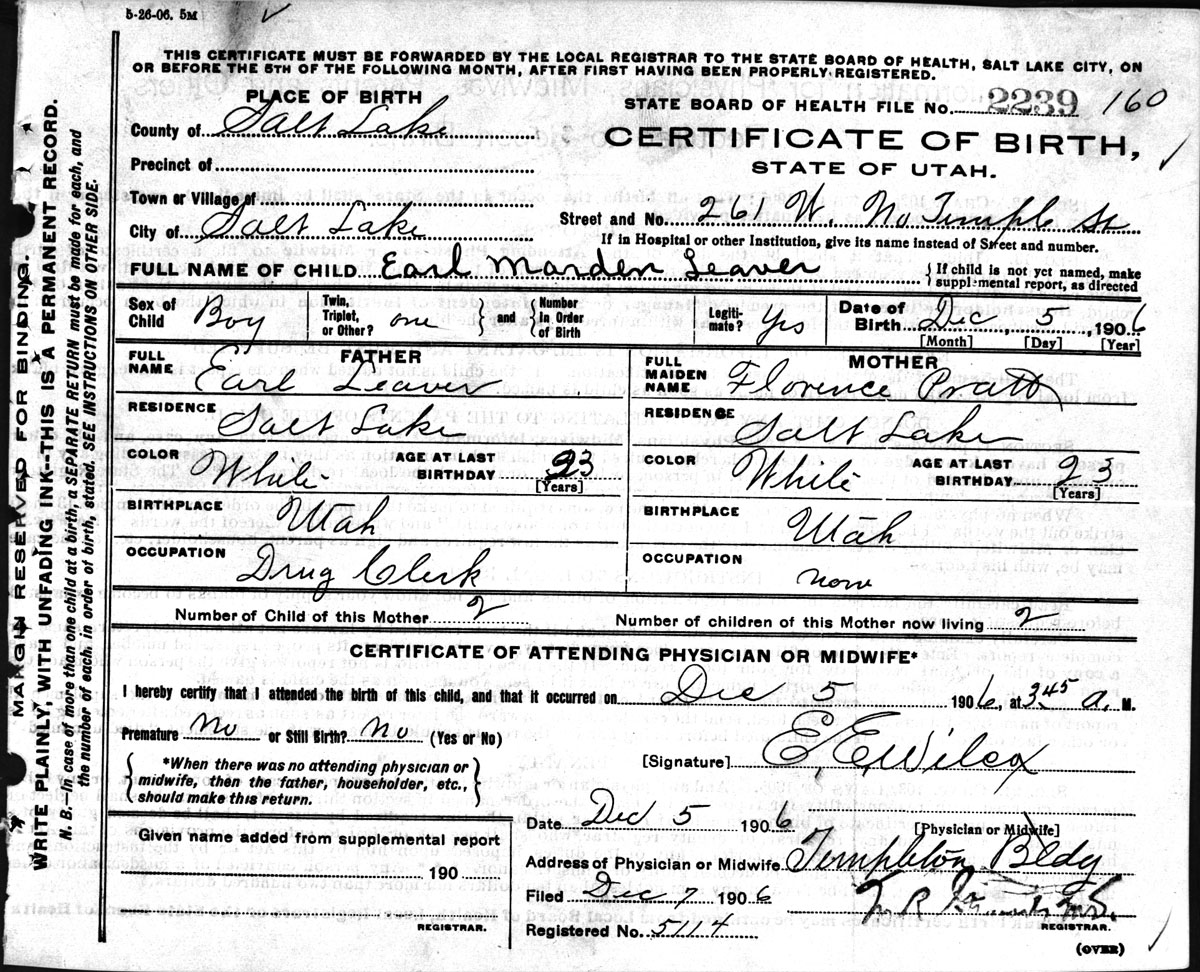 5-26-06. 5M
THIS CERTIFICATE MUST BE FORWARDED BY THE LOCAL REGISTRAR TO THE STATE BOARD OF HEALTH, SALT LAKE CITY, ON
OR BEFORE THE 5TH OF THE FOLLOWING MONTH, AFTER FIRST HAVING BEEN PROPERLY REGISTERED.
MARGIN RESERVED FOR BINDING.
WRITE PLAINLY, WITH UNFADING INK--THIS IS A PERMANENT RECORD.
N. B.—In case of more than one child at a birth, a SEPARATE RETURN must be made for each, and
the number of each, in order of birth, stated. SEE INSTRUCTIONS ON OTHER SIDE.
PLACE OF BIRTH
County of Salt Lake
Precinct of
Town or Village of
City of Salt Lake
STATE BOARD OF HEALTH FILE No. 2239 160
CERTIFICATE OF BIRTH,
STATE OF UTAH.
Street and No. 261 W. No Temple St
If in Hospital or other Institution, give its name instead of Street and number.
FULL NAME OF CHILD Earl Marden Leaver
If child is not yet named, make
supplemental report, as directed
Sex of Child Boy
Twin, Triplet, or Other? one
and
Number in Order of Birth
Legitimate? Yes
Date of Birth Dec 5, 1906
[Month] [Day] [Year]
FATHER
FULL NAME Earl Leaver
RESIDENCE Salt Lake
COLOR White
AGE AT LAST BIRTHDAY 23
[Years]
BIRTHPLACE Utah
OCCUPATION Drug Clerk
MOTHER
FULL MAIDEN NAME Florence Pratt
RESIDENCE Salt Lake
COLOR White
AGE AT LAST BIRTHDAY 23
[Years]
BIRTHPLACE Utah
OCCUPATION none
Number of Child of this Mother 2
Number of children of this Mother now living 2
CERTIFICATE OF ATTENDING PHYSICIAN OR MIDWIFE*
I hereby certify that I attended the birth of this child, and that it occurred on Dec 5 1906, at 3 45 a. M.
Premature No or Still Birth? No (Yes or No)
*When there was no attending physician or
midwife, then the father, householder, etc.,
should make this return.
[Signature] E. E. Wilcox
Date Dec 5 1906
[Physician or Midwife]
Given name added from supplemental report
190
REGISTRAR.
Address of Physician or Midwife Templeton Bldg
Filed Dec 7 1906
Registered No. 5114
REGISTRAR.
(OVER)